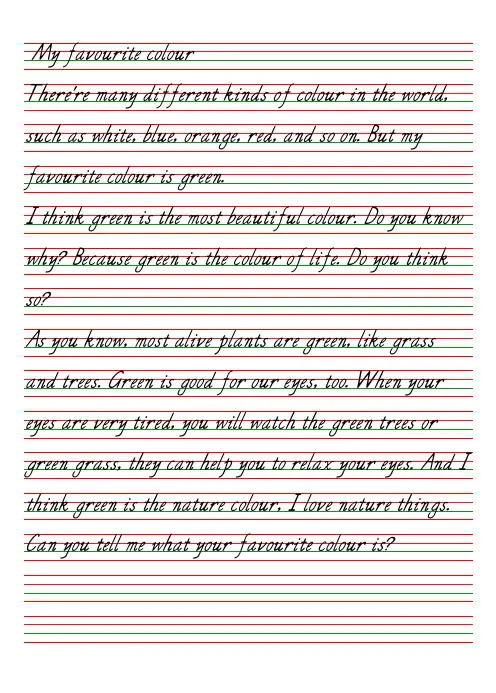 My favourite colour
There're many different kinds of colour in the world,
such as white, blue, orange, red, and so on. But my
favourite colour is green.
I think green is the most beautiful colour. Do you know
why? Because green is the colour of life. Do you think
so?
As you know, most alive plants are green, like grass
and trees. Green is good for our eyes, too. When your
eyes are very tired, you will watch the green trees or
green grass, they can help you to relax your eyes. And I
think green is the nature colour, I love nature things.
Can you tell me what your favourite colour is?